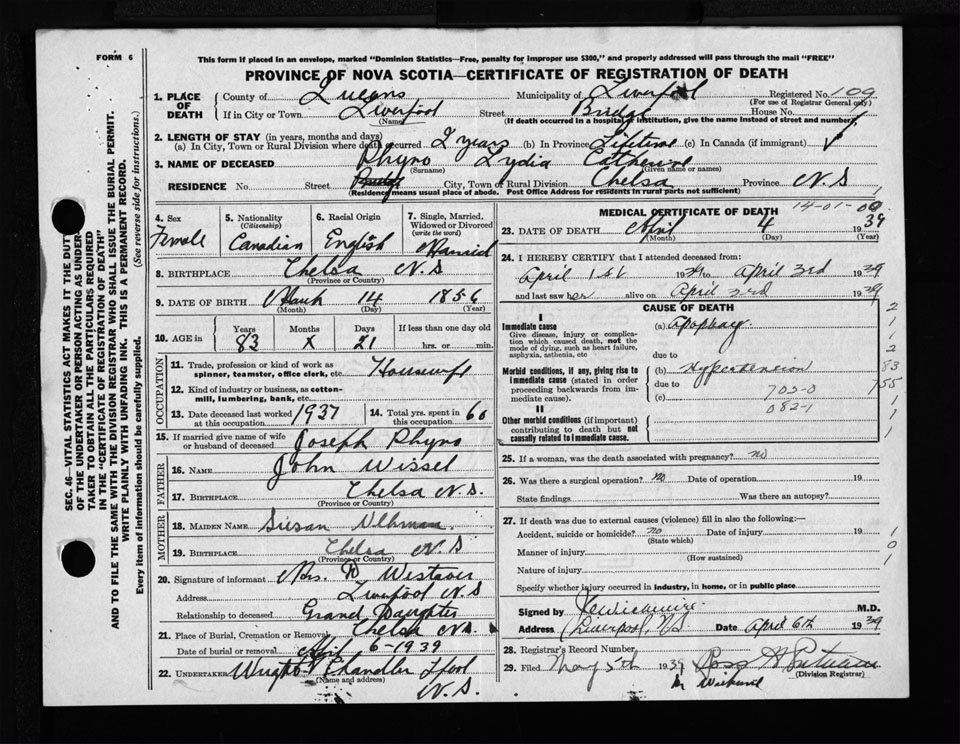 FORM 6
This form if placed in an envelope, marked "Dominion Statistics—Free, penalty for improper use $300," and properly addressed will pass through the mail "FREE"
PROVINCE OF NOVA SCOTIA—CERTIFICATE OF REGISTRATION OF DEATH
SEC. 46—VITAL STATISTICS ACT MAKES IT THE DUTY
OF THE UNDERTAKER OR PERSON ACTING AS UNDER-
TAKER TO OBTAIN ALL THE PARTICULARS REQUIRED
IN THE "CERTIFICATE OF REGISTRATION OF DEATH"
AND TO FILE THE SAME WITH THE DIVISION REGISTRAR WHO SHALL ISSUE THE BURIAL PERMIT.
WRITE PLAINLY WITH UNFADING INK. THIS IS A PERMANENT RECORD.
Every item of information should be carefully supplied. (See reverse side for instructions.)
1. PLACE OF DEATH
County of Queens Municipality of Liverpool Registered No. 109
(For use of Registrar General only)
If in City or Town Liverpool Street Bridge House No.
(Name) (If death occurred in a hospital or institution, give the name instead of street and number)
2. LENGTH OF STAY (in years, months and days)
(a) In City, Town or Rural Division where death occurred 2 years (b) In Province Lifetime (c) In Canada (if immigrant)
3. NAME OF DECEASED Rhyno Lydia Catherine
(Surname) (Given name or names)
RESIDENCE No. Street City, Town or Rural Division Chelsa Province N.S
(Residence means usual place of abode. Post Office Address for residents in rural parts not sufficient)
4. Sex
Female
5. Nationality
(Citizenship)
Canadian
6. Racial Origin
English
7. Single, Married,
Widowed or Divorced
(write the word)
Married
8. BIRTHPLACE Chelsa N.S
(Province or Country)
9. DATE OF BIRTH March 14 1856
(Month) (Day) (Year)
10. AGE in Years Months Days If less than one day old
83 X 21 hrs. or min.
OCCUPATION
11. Trade, profession or kind of work as
spinner, teamster, office clerk, etc. Housewife
12. Kind of industry or business, as cotton-
mill, lumbering, bank, etc.
13. Date deceased last worked
at this occupation 1937
14. Total yrs. spent in
this occupation 60
15. If married give name of wife
or husband of deceased Joseph Rhyno
FATHER
16. NAME John Wissel
17. BIRTHPLACE Chelsa N.S.
(Province or Country)
MOTHER
18. MAIDEN NAME Susan
19. BIRTHPLACE Chelsa N.S
(Province or Country)
20. Signature of informant Mrs. Westaver
Address Liverpool N.S
Relationship to deceased Grand Daughter
21. Place of Burial, Cremation or Removal Chelsa N.S
Date of burial or removal April 6-1939
22. UNDERTAKER Wright Chandler Lpool
(Name and address)
N.S.
MEDICAL CERTIFICATE OF DEATH
14-01-00
23. DATE OF DEATH April 4 1939
(Month) (Day) (Year)
24. I HEREBY CERTIFY that I attended deceased from:
April 1st 1939 to April 3rd 1939
and last saw her alive on April 3rd 1939
CAUSE OF DEATH
I
Immediate cause
Give disease, injury or complica-
tion which caused death, not the
mode of dying, such as heart failure,
asphyxia, asthenia, etc
(a) Apoplexy
due to
Morbid conditions, if any, giving rise to
immediate cause (stated in order
proceeding backwards from im-
mediate cause).
(b) Hypertension
due to
(c)
702-0
082-1
II
Other morbid conditions (if important)
contributing to death but not
causally related to immediate cause.
2
1
1
2
83
755
1
1
25. If a woman, was the death associated with pregnancy? no
26. Was there a surgical operation? no Date of operation 19
State findings Was there an autopsy?
27. If death was due to external causes (violence) fill in also the following:—
Accident, suicide or homicide? no Date of injury 19
(State which)
Manner of injury
(How sustained)
Nature of injury
1
0
1
Specify whether injury occurred in industry, in home, or in public place
Signed by M.D.
Address Liverpool, N.S. Date April 6th 1939
28. Registrar's Record Number
29. Filed May 5th 1939 Ross
(Division Registrar)